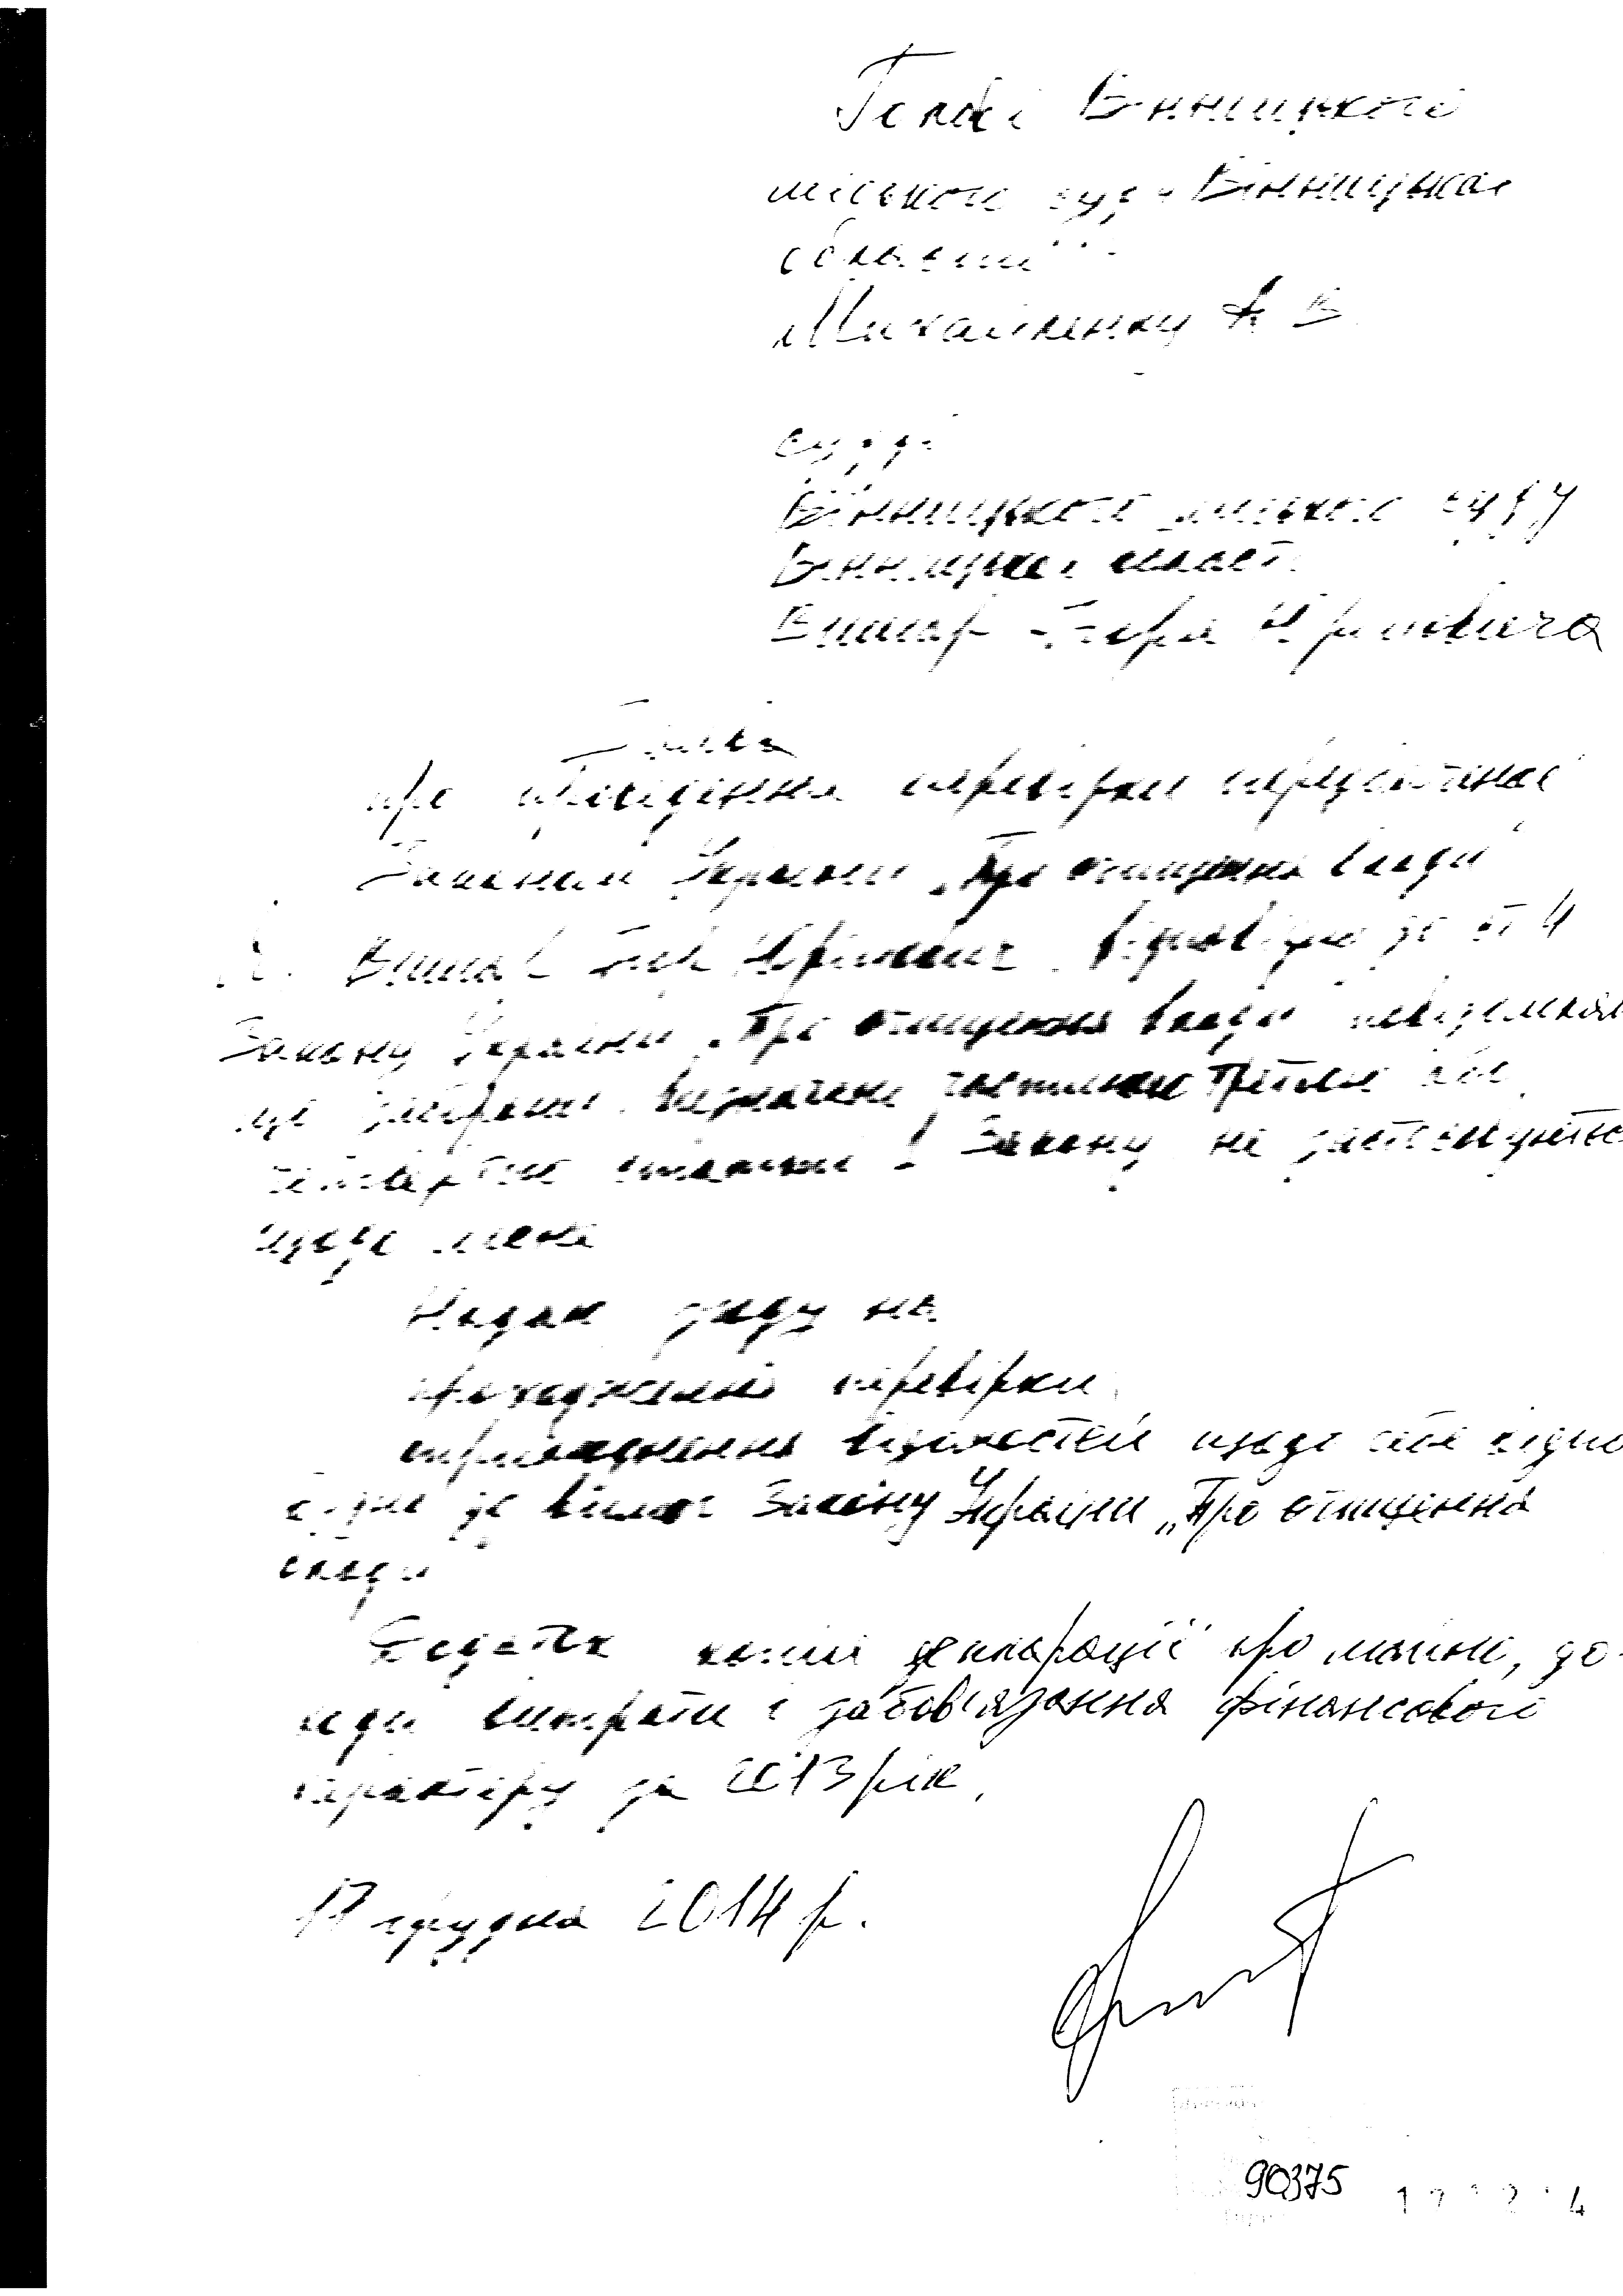 Голові Вінницького
міського суду Вінницької
області
Михайленку А В
судді
Вінницького міського суду
Вінницької області
Вишар Ігоря Юрійовича
Заява
про проведення перевірки, передбаченої
Законом України „Про очищення влади"
Я, Ігор Юрійович, відповідно до ст 4
Закону України „Про очищення влади" повідомляю,
що заборони, визначені частиною третьою або
четвертою статті 1 Закону не застосовуються
щодо мене
Надаю згоду на
проходження перевірки,
оприлюднення відомостей щодо себе відпо
відно до вимог Закону України „Про очищення
влади"
Додаток копія декларації про майно, до-
ходи витрати і зобов'язання фінансового
характеру за 2013 рік,
17 грудня 2014 р.
90375